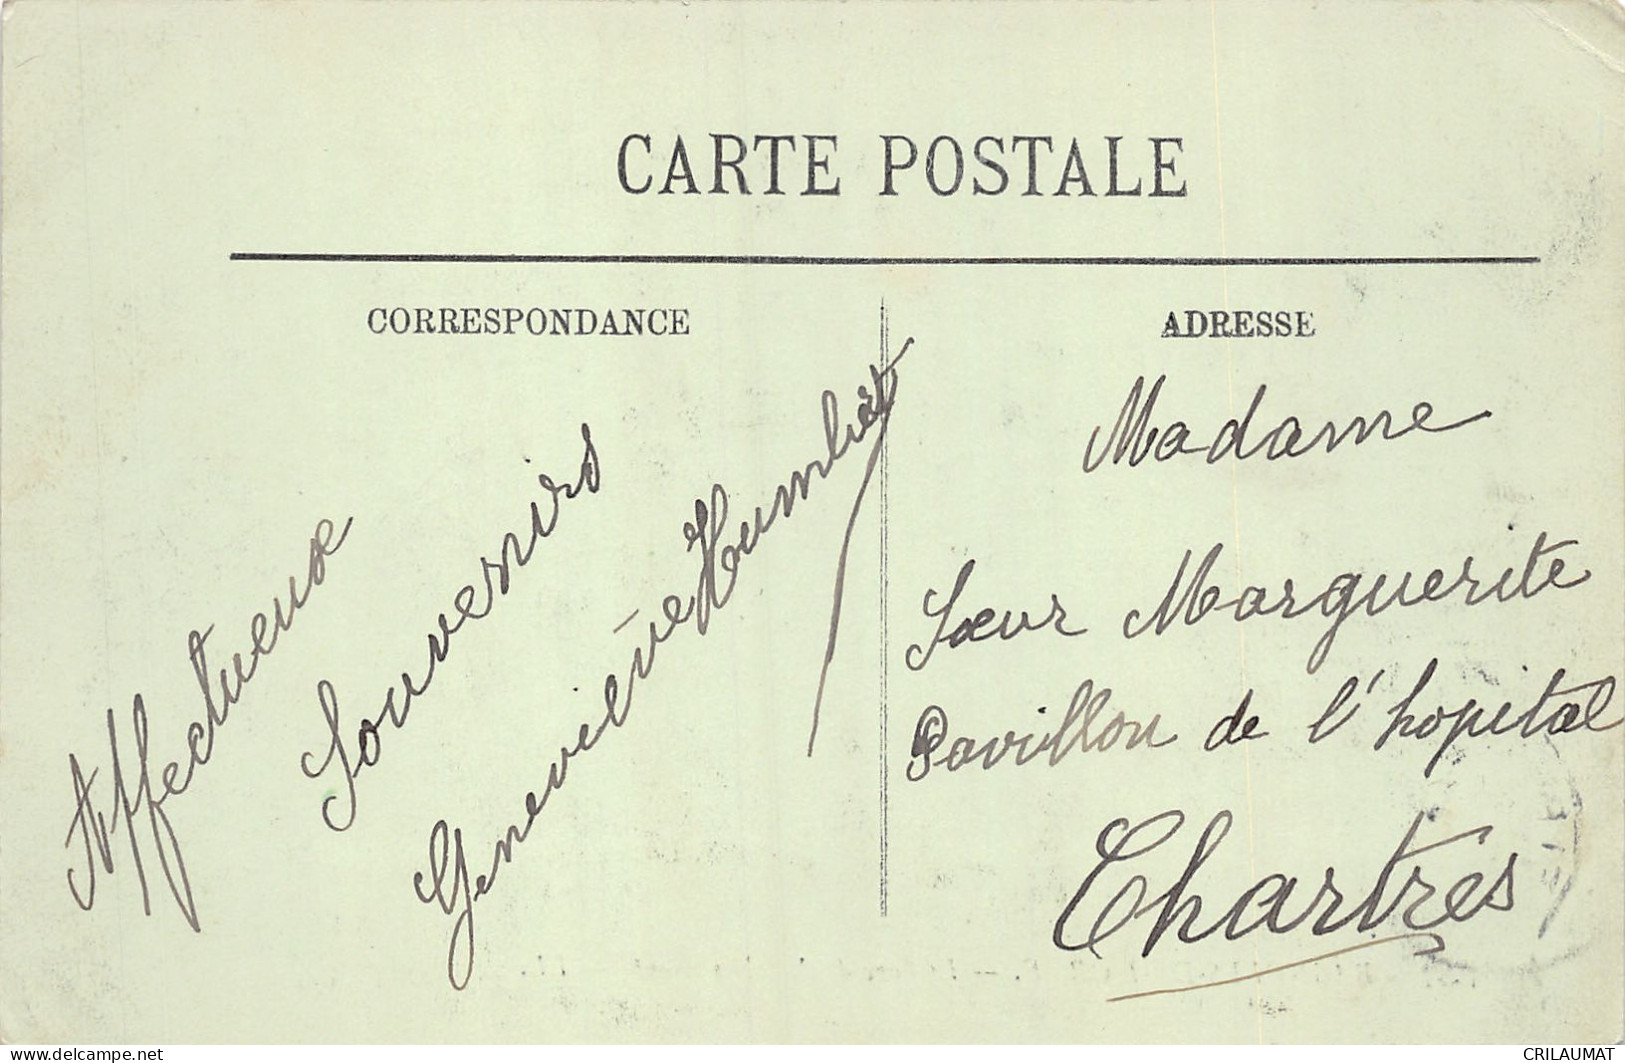 CARTE POSTALE
CORRESPONDANCE
ADRESSE
Affectueux
Souvenirs
Geneviève Humbert
Madame
Sœur Marguerite
Pavillon de l'hopital
Chartres
www.delcampe.net
CRILAUMAT